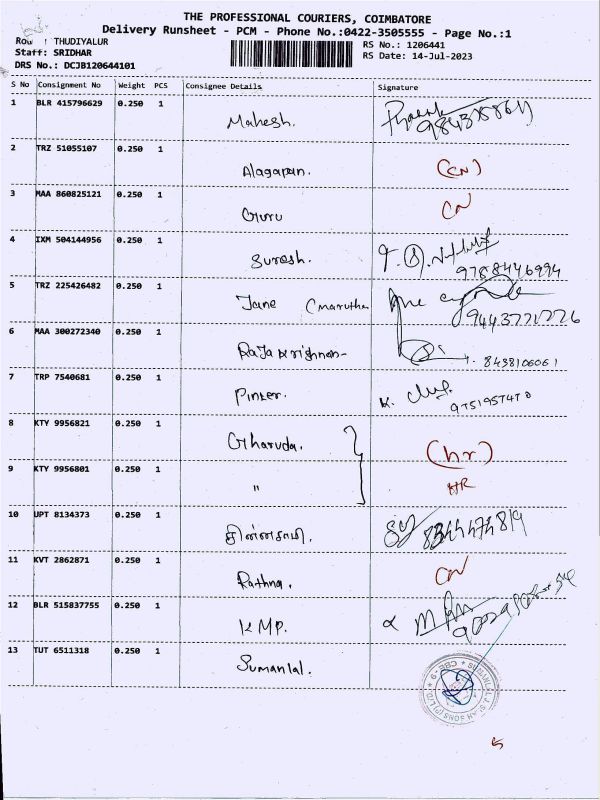 THE PROFESSIONAL COURIERS, COIMBATORE
Delivery Runsheet - PCM - Phone No.:0422-3505555 - Page No.:1
: THUDIYALUR
RS No.: 1206441
Staff: SRIDHAR
RS Date: 14-Jul-2023
DRS No.: DCJB120644101
S No Consignment No Weight PCS Consignee Details Signature
1 BLR 415796629 0.250 1 Mahesh.
2 TRZ 51055107 0.250 1 Alagappan. (CN)
3 MAA 860825121 0.250 1 Guru CN
4 IXM 504144956 0.250 1 Suresh. 9788446994
5 TRZ 225426482 0.250 1 Jane (marutha 9443771776
6 MAA 300272340 0.250 1 Rajakrishnan- 8438106061
7 TRP 7540681 0.250 1 Pinter. K. 9751957470
8 KTY 9956821 0.250 1 Gharuda. (hr)
9 KTY 9956801 0.250 1 " HR
10 UPT 8134373 0.250 1 8344474819
11 KVT 2862871 0.250 1 Rathna. CN
12 BLR 515837755 0.250 1 KMP.
13 TUT 6511318 0.250 1 Sumanlal.